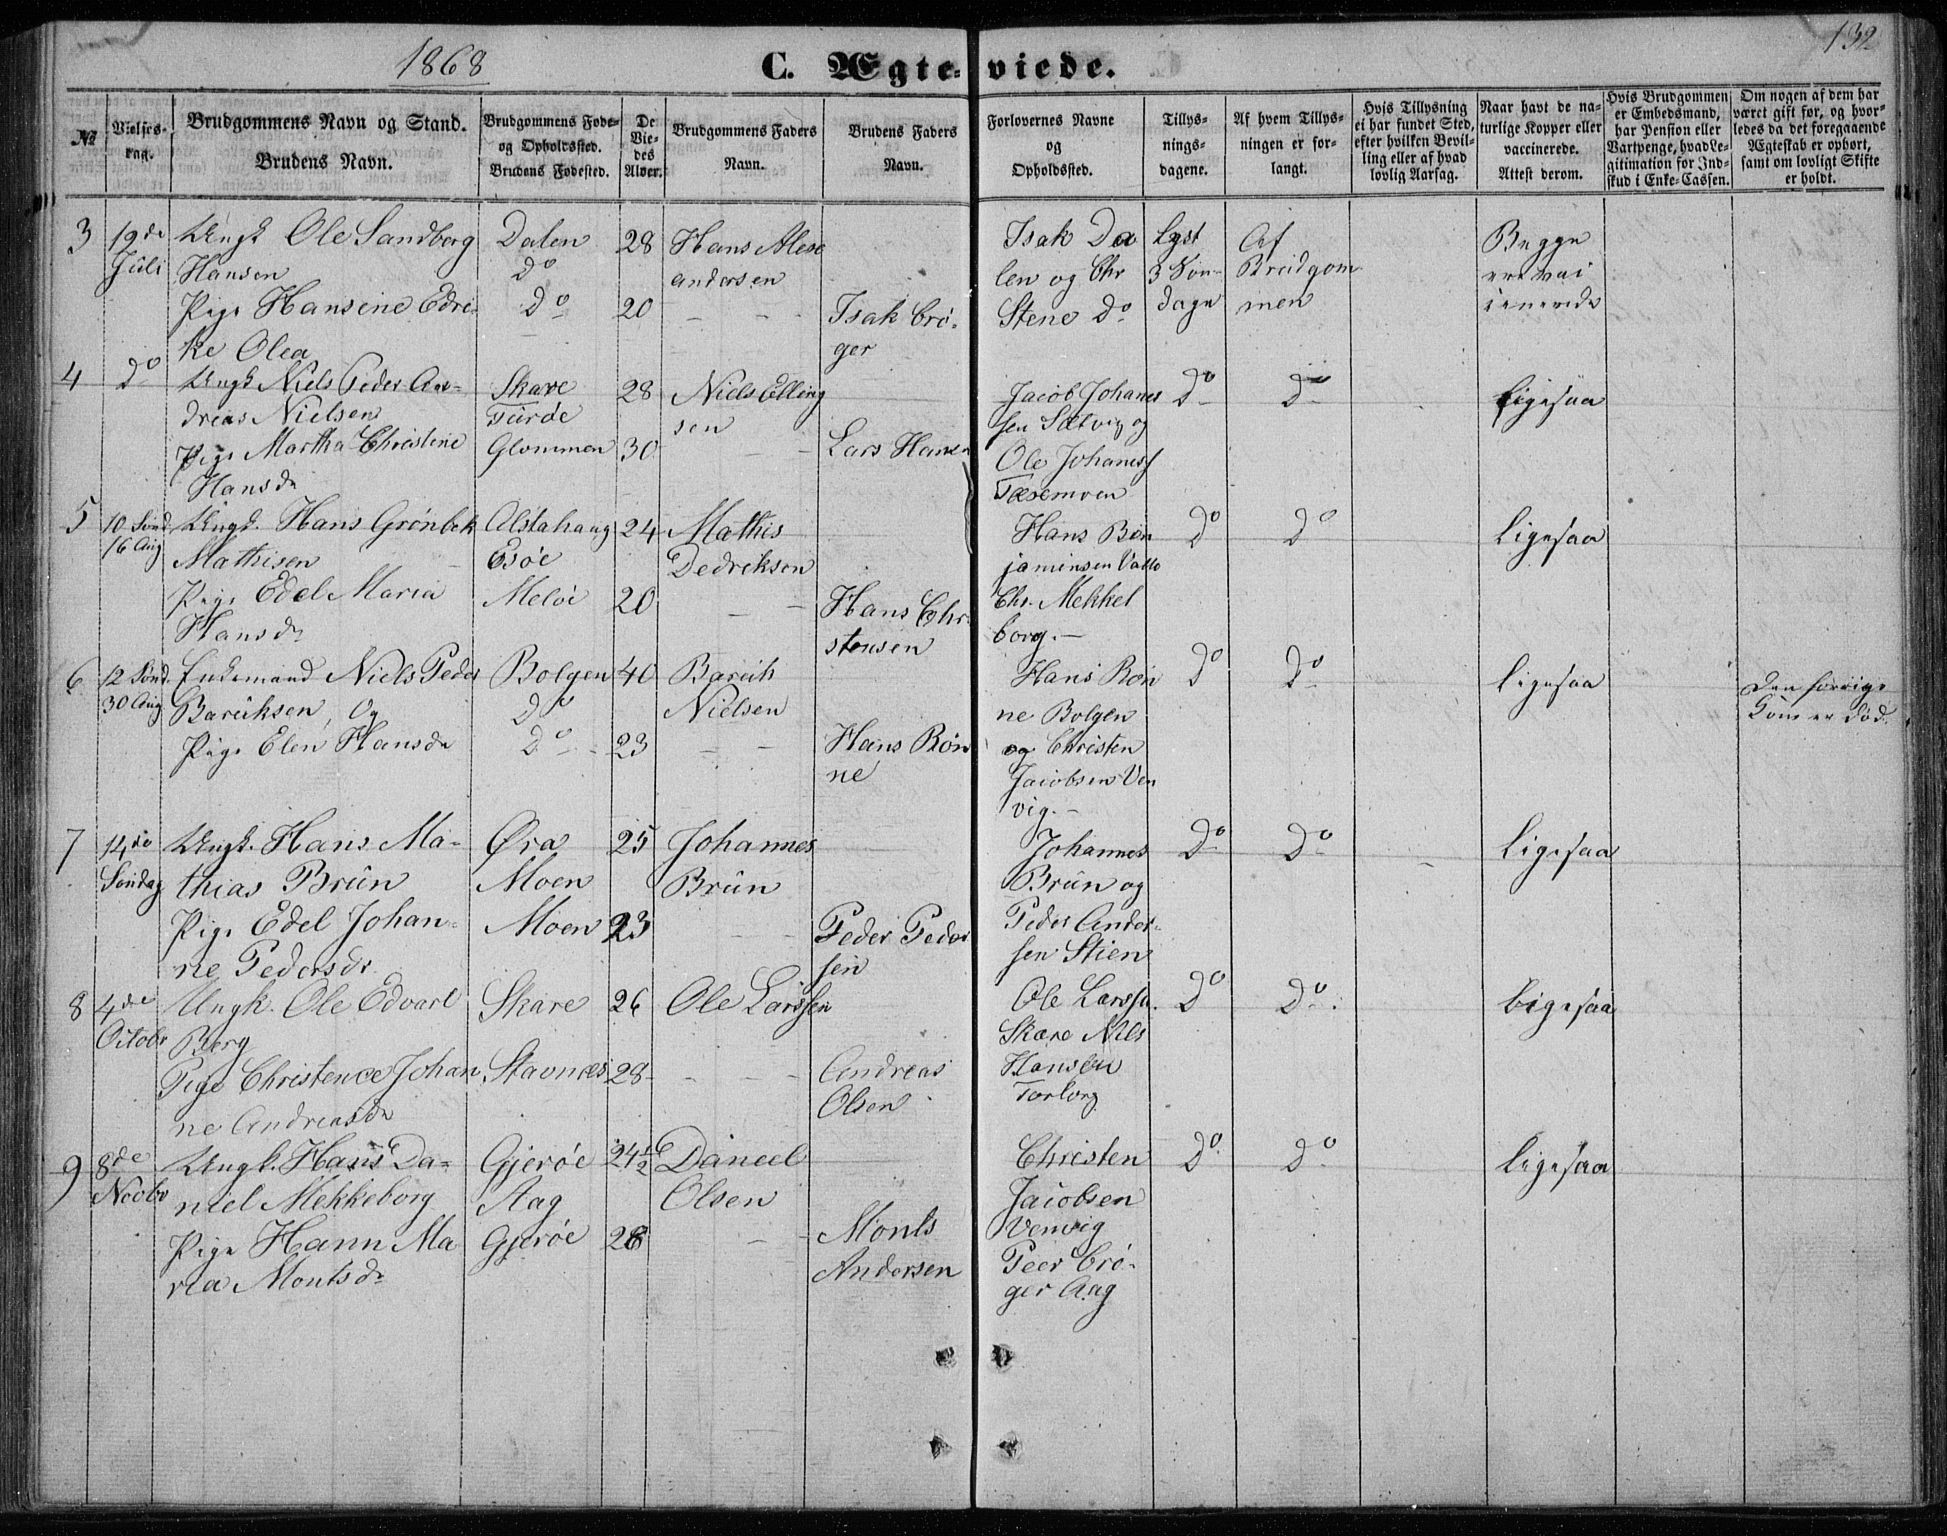 1868
C. Ægteviede.
132
No
Vielses-
dag.
Brudgommens Navn og Stand.
Brudens Navn.
Brudgommens Føde-
og Opholdssted.
Brudens Fødested.
De
Vie-
des
Alder.
Brudgommens Faders
Navn.
Brudens Faders
Navn.
Forlovernes Navne
og
Opholdssted.
Tillys-
nings-
dagene.
Af hvem Tillys-
ningen er for-
langt.
Hvis Tillysning
ei har fundet Sted,
efter hvilken Bevil-
ling eller af hvad
lovlig Aarsag.
Naar havt de na-
turlige Kopper eller
vaccinerede.
Attest derom.
Hvis Brudgommen
er Embedsmand,
har Pension eller
Vartpenge, hvad Le-
gitimation for Ind-
skud i Enke-Cassen.
Om nogen af dem har
været gift før, og hvor-
ledes da det foregaaende
Ægteskab er ophørt,
samt om lovligt Skifte
er holdt.
3
19de
Juli
Ungk Ole Sandberg
Hansen
Pige Hansine Edri-
ke Olea
Dalen
Do
Do
28
20
Hans Alex
andersen
Isak Crö-
ger
Isak Da
len og Chr
Stene Do
Lyst
3 Søn-
dage
Af
Brudgom
men
Begge
ere vac
cinerede
4
Do
Ungk Niels Peder An-
dreas Nielsen
Pige Martha Christine
Hansdr
Skare
Glommen
28
30
Niels Elling
sen
Lars Hansen
Jacob Johanes
sen Sætvig og
Ole Johaness
Do
Do
Ligesaa
5
10 Sønd
16 Aug
Ungk. Hans Grönbek
Mathisen
Pige Edel Maria
Hansdr
Alstahaug
Esöe
Melöe
24
20
Mathis
Dedreksen
Hans Chr
stensen
Hans Ben
jaminsen Valle
Chr. Mekkel
borg.
Do
Do
Ligesaa
6
12 Sønd.
30 Aug
Enkemand Niels Peder
Barüksen, Og
Pige Elen Hansdr
Bolgen
Do
Do
40
23
Barük
Nielsen
Hans Rön
ne
Hans Rön
ne Bolgen
og Christen
Jacobsen Ven
vig.
Do
Do
Ligesaa
Den forrige
Kone er død.
7
14de
Søndag
Ungk. Hans Ma-
thias Brün
Pige Edel Johan-
ne Pedersdr
Øra
Moen
Moen
25
23
Johannes
Brün
Peder Peder
sen
Johannes
Brün og
Peder Ander-
sen Stien
Do
Do
Ligesaa
8
4de
Octobr
Ungk. Ole Edvart
Berg
Pige Christence Johan
ne Andreasdr
Skare
Stavnæs
26
28
Ole Larssen
Andreas
Olsen
Ole Larssn.
Skare Nils
Hansen
Do
Do
Ligesaa
9
8de
Novbr
Ungk. Hans Da-
niel Mekkeborg
Pige Hann Ma
ria Montsdr
Gjeröe
Aag
Gjeröe
24½
28
Daneel
Olsen
Monts
Andersen
Christen
Jacobsen
Venvig
Peer Crö-
ger Aag
Do
Do
Ligesaa